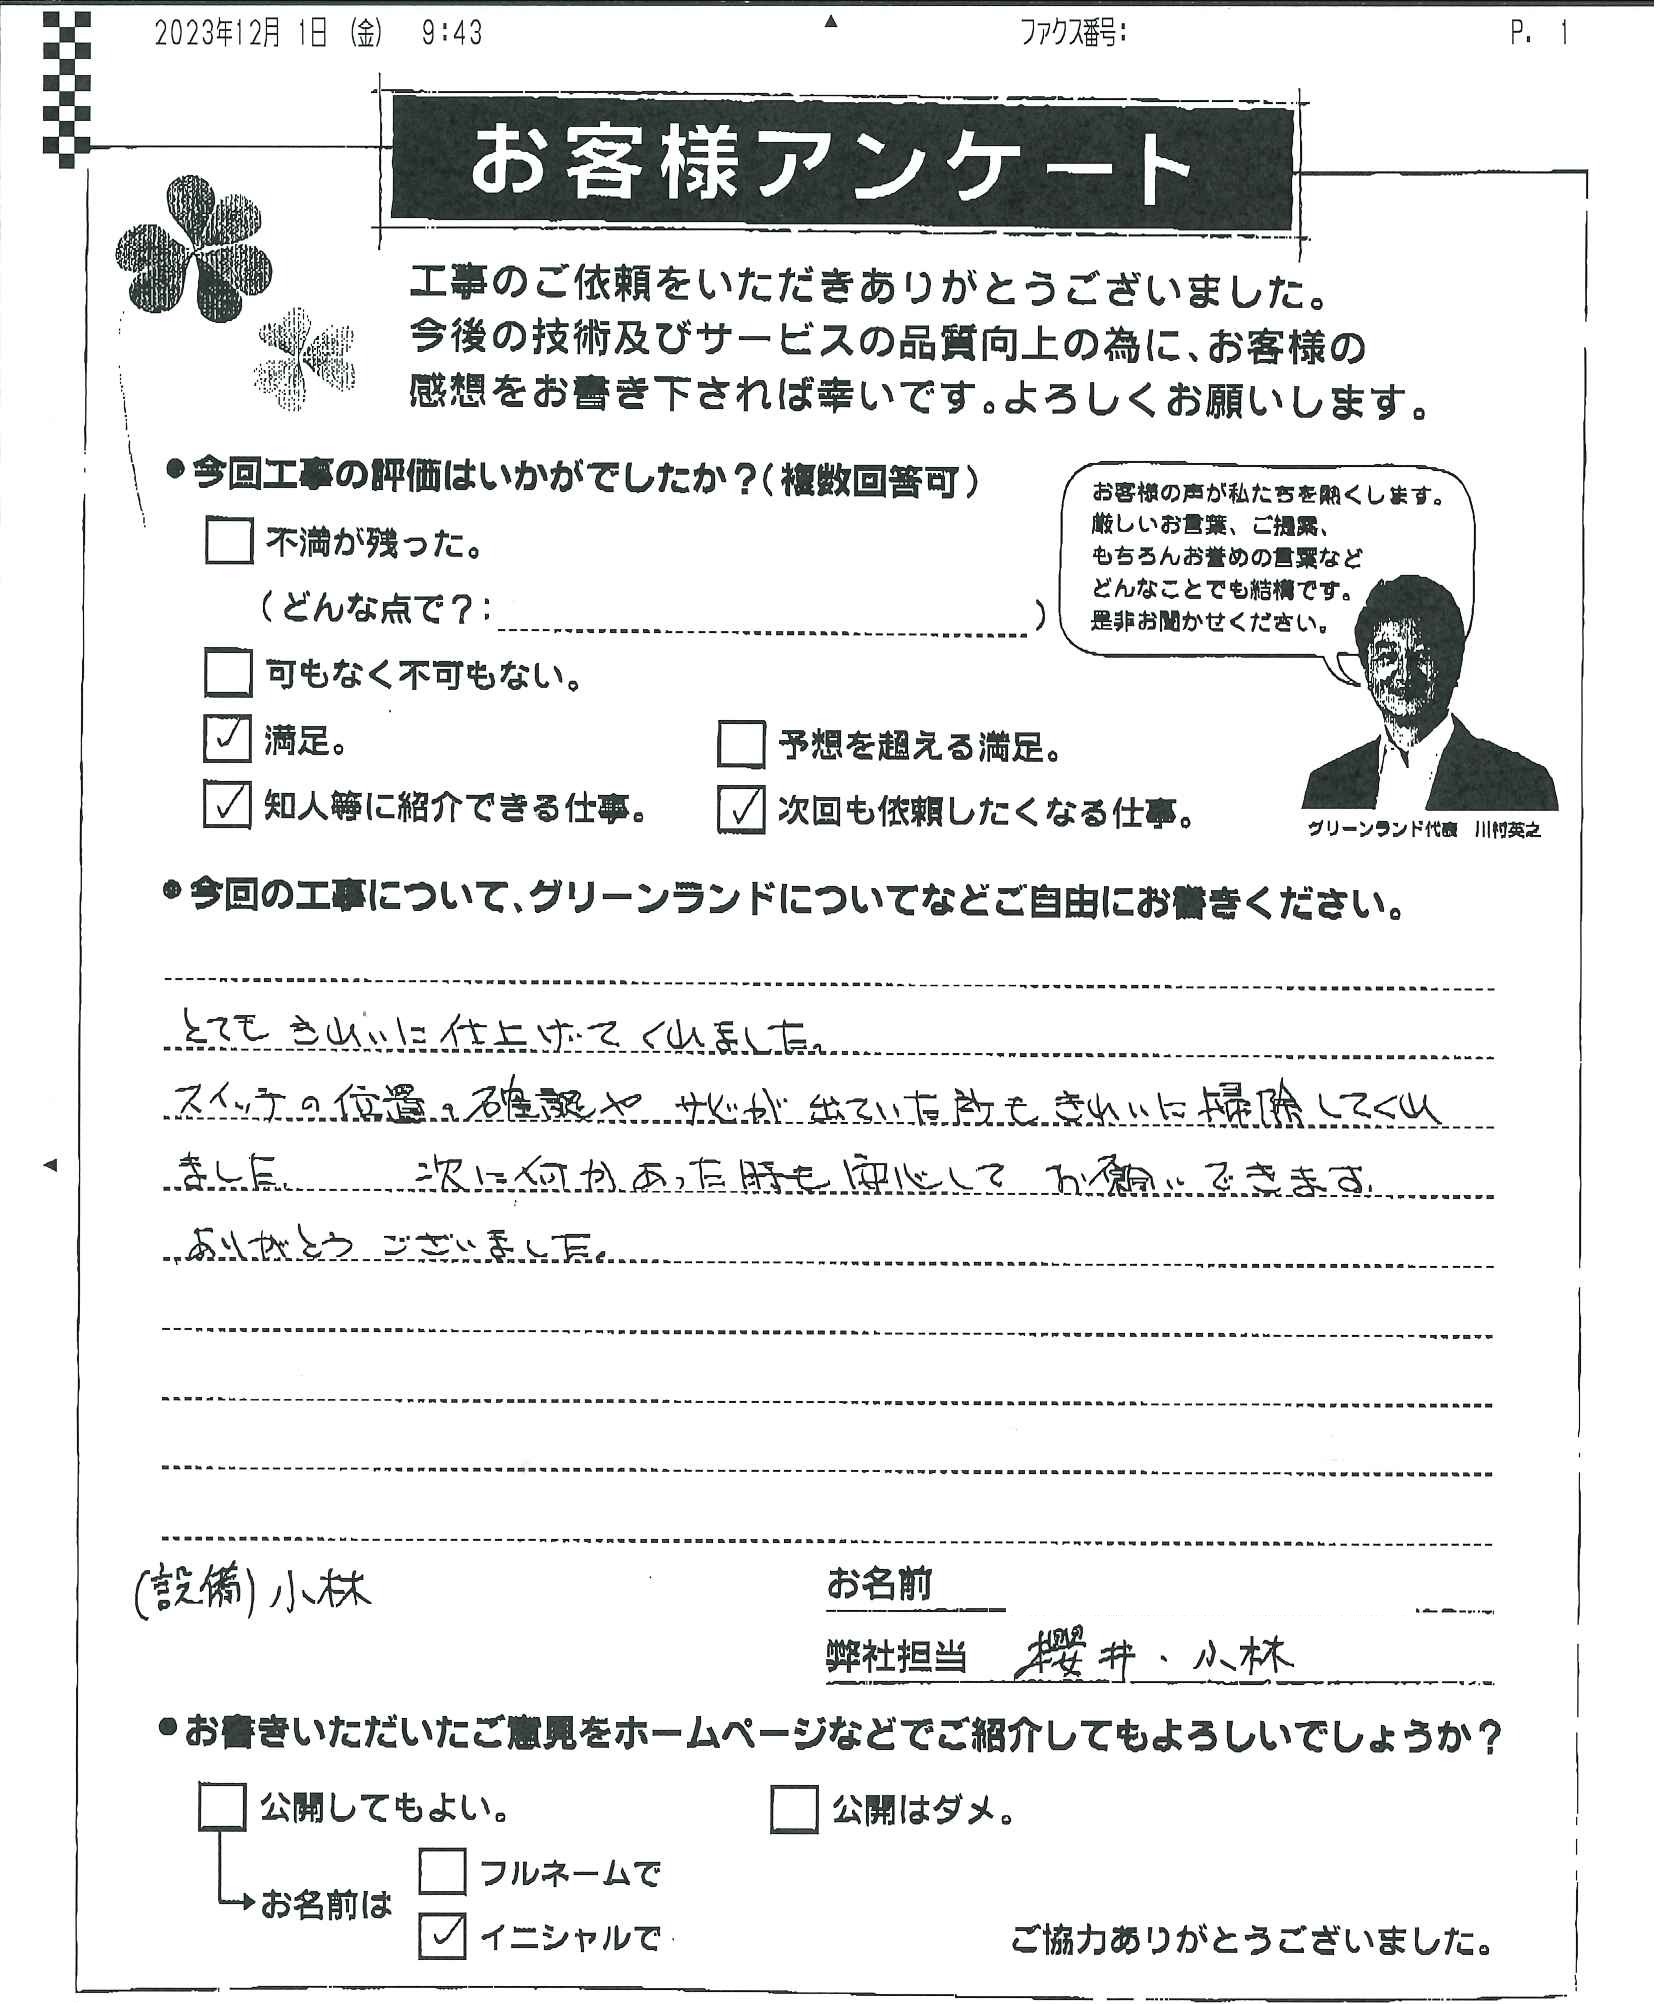 2023年12月 1日 (金) 9:43 ファクス番号: P. 1
お客様アンケート
工事のご依頼をいただきありがとうございました。
今後の技術及びサービスの品質向上の為に、お客様の
感想をお書き下されば幸いです。よろしくお願いします。
●今回工事の評価はいかがでしたか?(複数回答可)
不満が残った。
(どんな点で?: )
可もなく不可もない。
✓ 満足。 予想を超える満足。
✓ 知人等に紹介できる仕事。 ✓ 次回も依頼したくなる仕事。
お客様の声が私たちを熱くします。
厳しいお言葉、ご提案、
もちろんお誉めの言葉など
どんなことでも結構です。
是非お聞かせください。
グリーンランド代表 川村英之
●今回の工事について、グリーンランドについてなどご自由にお書きください。
とても きれいに 仕上げて くれました。
スイッチの位置の確認や サビが 出ていた所も きれいに 掃除してくれ
ました。 次に何かあった時も 安心して お願いできます。
ありがとう ございました。
(設備) 小林
お名前
弊社担当 櫻井・小林
●お書きいただいたご意見をホームページなどでご紹介してもよろしいでしょうか?
公開してもよい。 公開はダメ。
お名前は フルネームで
✓ イニシャルで
ご協力ありがとうございました。